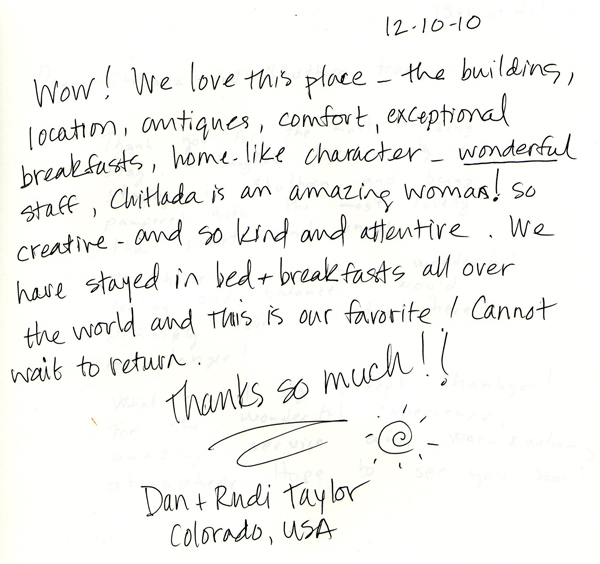 12-10-10
Wow! We love this place - the building,
location, antiques, comfort, exceptional
breakfasts, home-like character - wonderful
staff, Chitlada is an amazing woman! so
creative - and so kind and attentive. We
have stayed in bed + breakfasts all over
the world and this is our favorite! Cannot
wait to return.
Thanks so much!!
Dan + Rudi Taylor
Colorado, USA